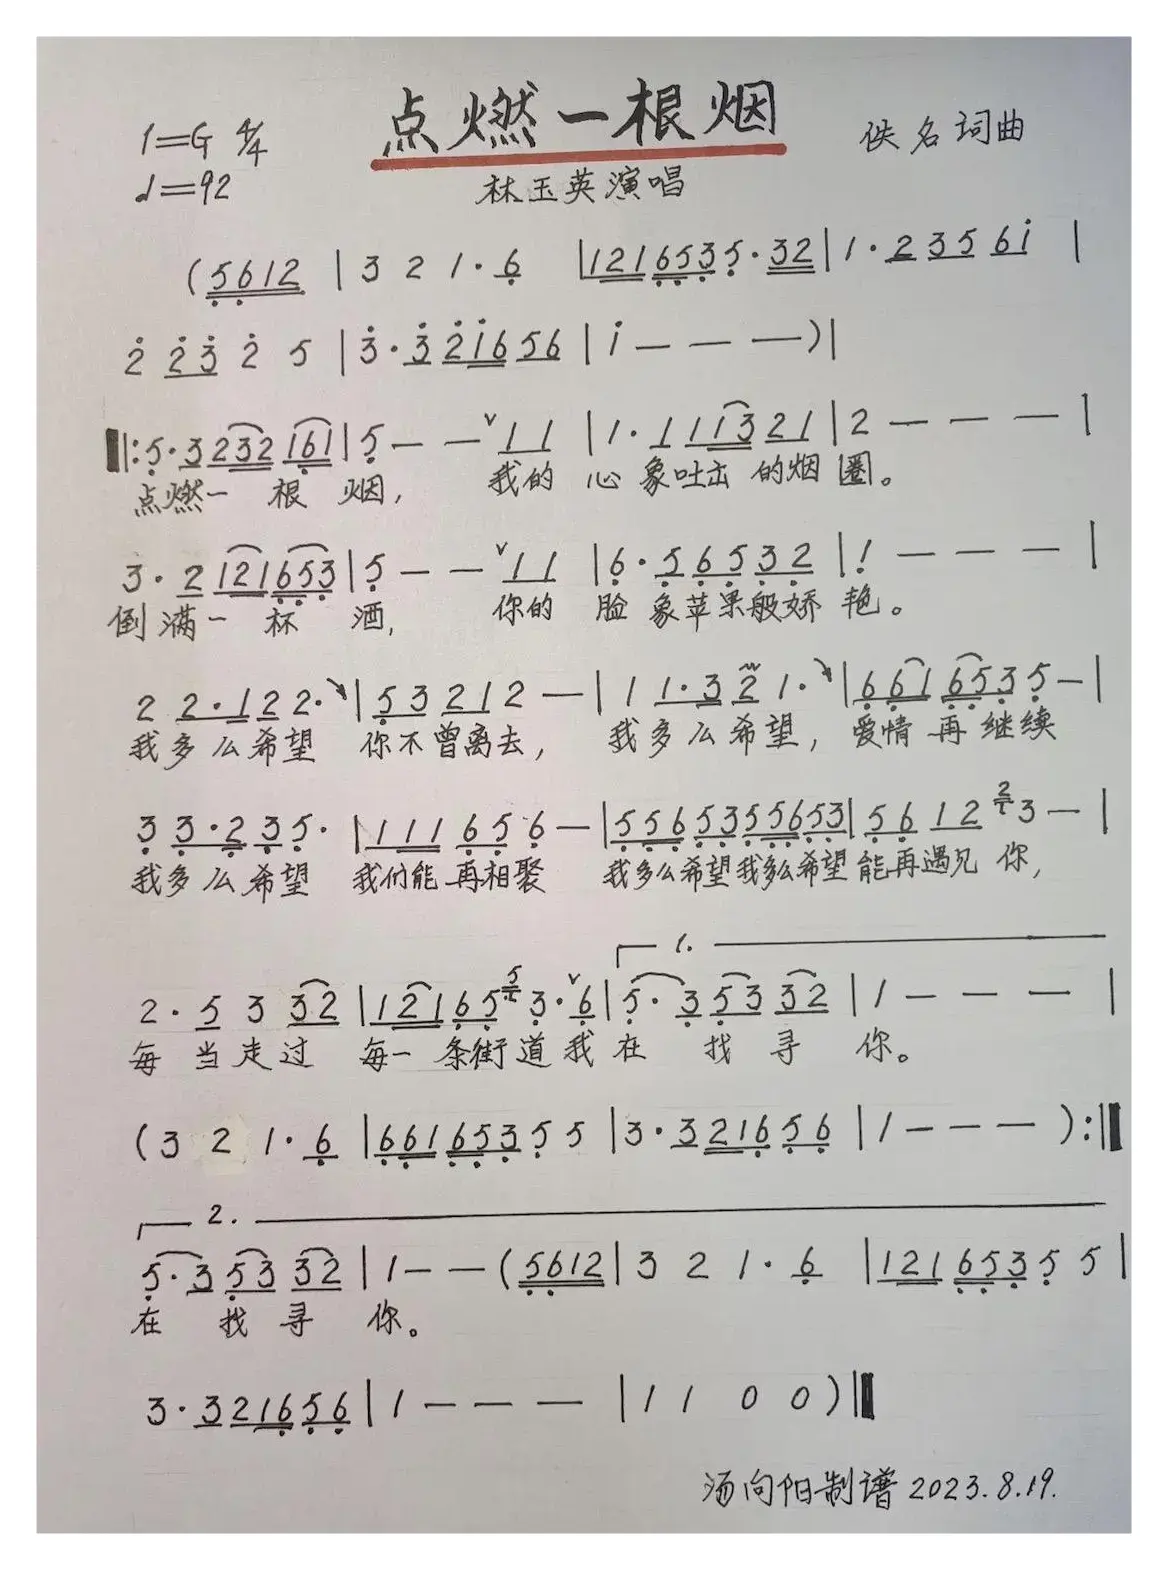 点燃一根烟
1=G 4/4
佚名词曲
♩=92
林玉英演唱
(5612 | 3 2 1· 6 | 1216535· 32 | 1· 2 35 6i |
2 23 2 5 | 3· 3 2i6 56 | i — — — ) |
‖: 5· 3 232 161 | 5 — — ᵛ 11 | 1· 1 113 21 | 2 — — — |
点燃一 根 烟, 我的 心 象吐出 的烟 圈。
3· 2 121653 | 5 — — ᵛ 11 | 6· 5 65 32 | 1 — — — |
倒满一 杯 酒, 你的 脸 象苹果般娇 艳。
2 2·122· | 53 21 2 — | 1 1·3 2 1· | 661 6535 — |
我多么希望 你不曾离去, 我多么希望, 爱情再继续
3 3·2 35· | 111 656 — | 556 53 556 53 | 56 12 2 3 — |
我多么希望 我们能再相聚 我多么希望我多么希望 能再遇见 你,
1.
2· 5 3 32 | 121 65 5 3· ᵛ 6 | 5· 3 53 32 | 1 — — — |
每 当走过 每一条街道我在 找 寻 你。
(3 2 1· 6 | 661 653 5 5 | 3· 3 216 56 | 1 — — — ) :‖
2.
5· 3 53 32 | 1 — — (5612 | 3 2 1· 6 | 121 653 5 5 |
在 找 寻 你。
3· 3 216 56 | 1 — — — | 1 1 0 0 ) ‖
汤向阳制谱 2023.8.19.